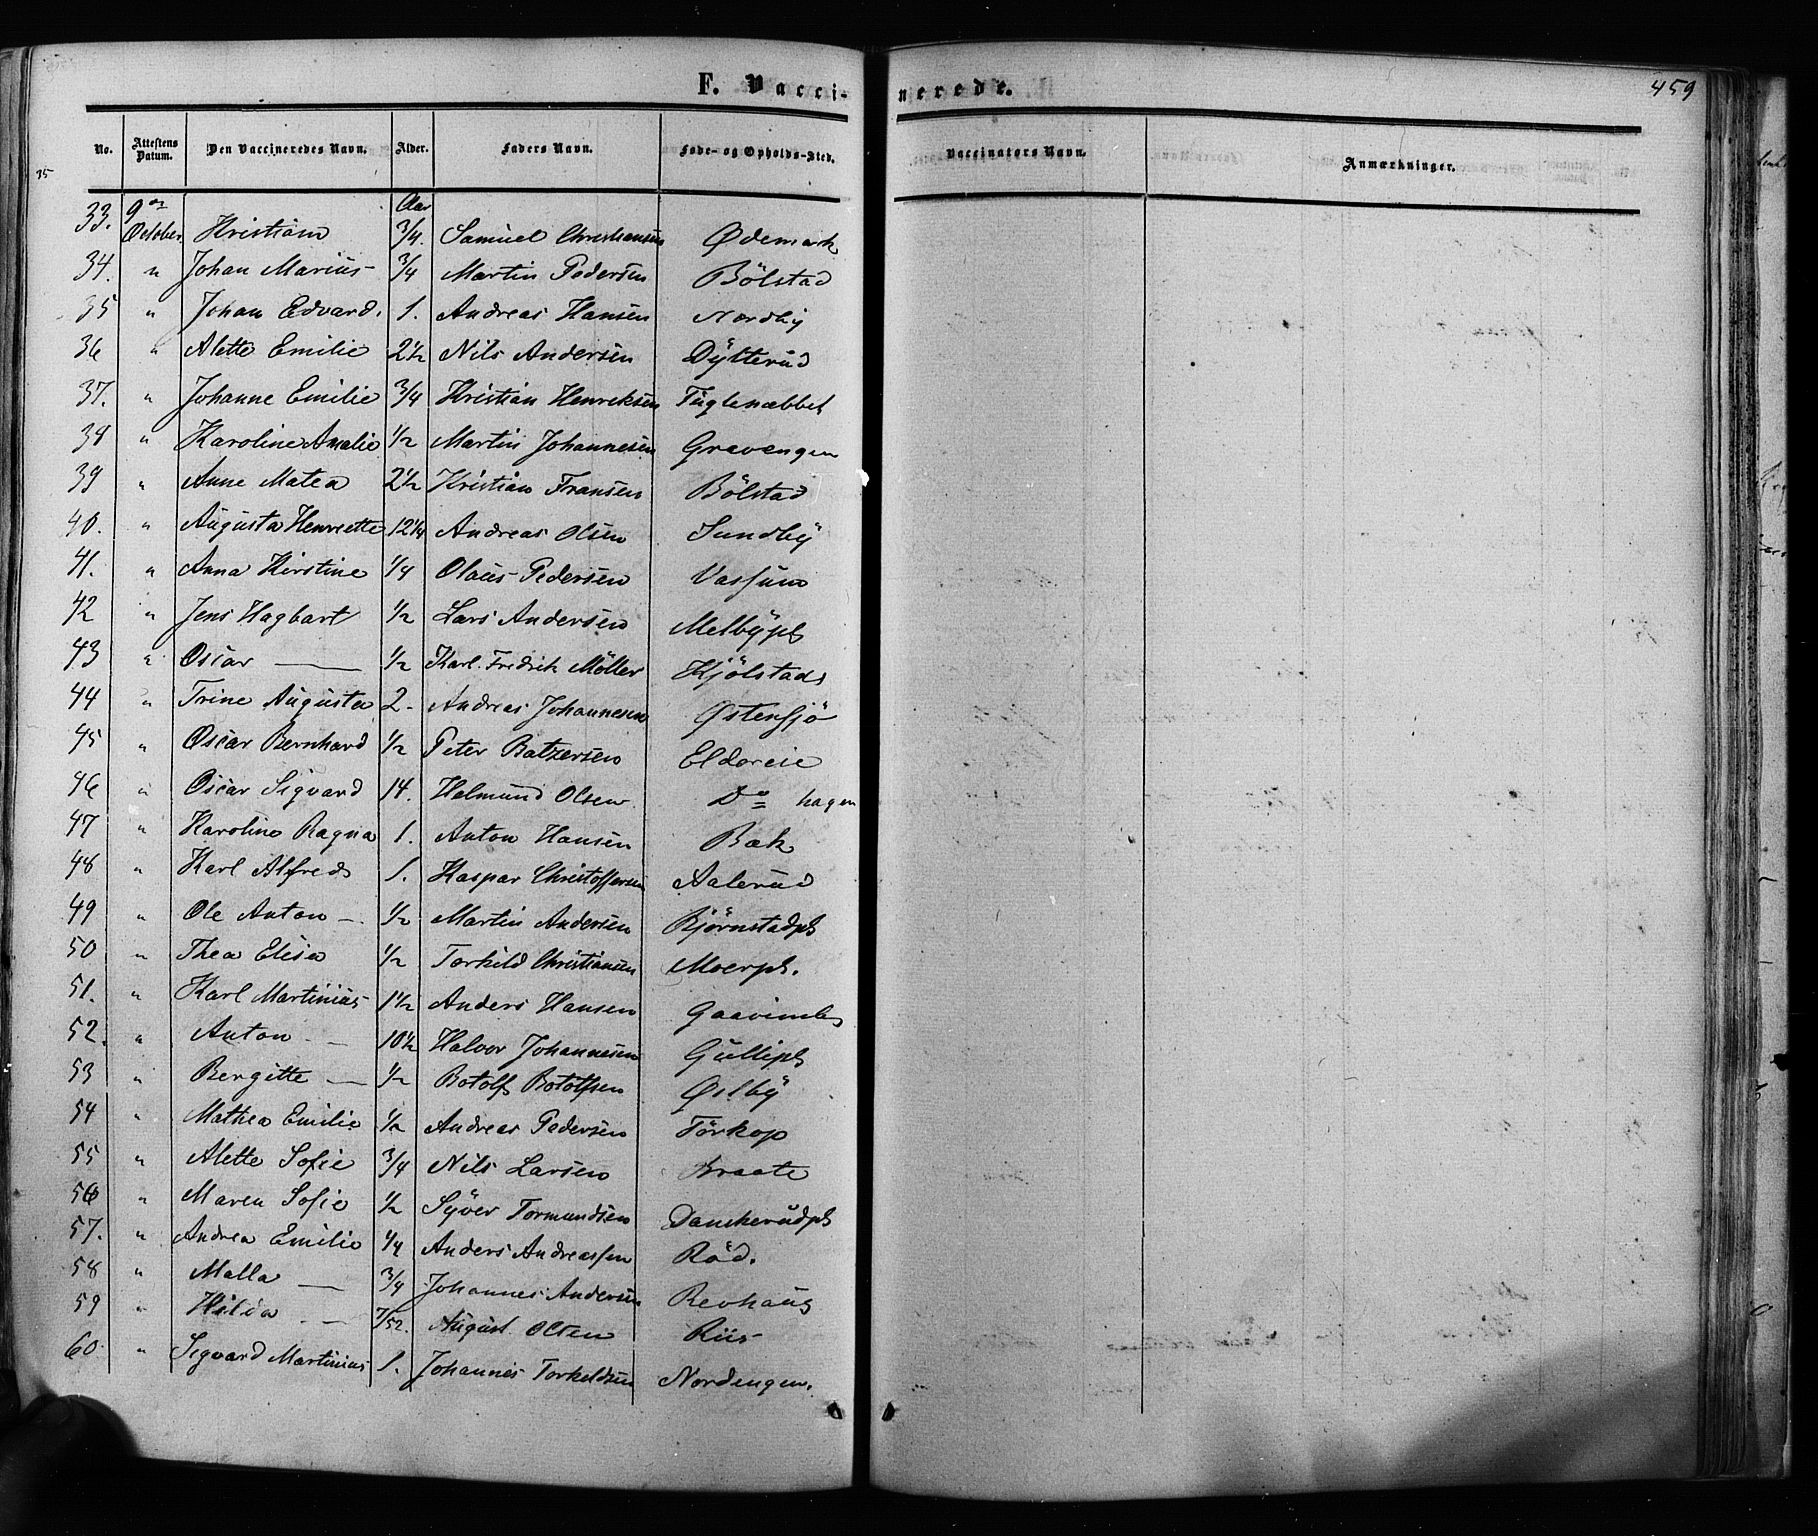 F. Vaccinerede.
459
No. Attestens Datum. Den Vaccineredes Navn. Alder. Faders Navn. Føde- og Opholds-Sted. Vaccinators Navn. Anmærkninger.
35
33. 9de October Kristian Aar 3/4. Samuel Christiansen Ødemark
34. " Johan Marius 3/4 Martin Pedersen Bölstad
35 " Johan Edvard. 1. Andreas Hansen Nordby
36 " Alette Emilie 2 1/2 Nils Andersen Dytterud
37. " Johanne Emilie 3/4 Kristian Henriksen Tuglenæbbet
38 " Karoline Amalie 1/2 Martin Johannesen Gravengen
39 " Anne Matea 2 1/2 Kristian Fransen Bölstad
40. " Augusta Henriette 12 1/4 Andreas Olsen Sundby
41. " Anna Kirstine 1/4 Olaus Pedersen Vassum
42 " Jens Hagbart 1/2 Lars Andersen Melbypl
43 " Oscar — 1/2 Karl Fredrik Möller Kjölstad
44 " Trine Augusta 2 - Andreas Johannesen Østensjö
45 " Oscar Bernhard 1/2 Peter Baltzersen Eldoreie
46 " Oscar Sigvard 14. Halmund Olsen Do hagen
47 " Karoline Ragna 1. Anton Hansen Bæk
48 " Karl Alfred 1. Kaspar Christoffersen Aalerud
49 " Ole Anton — 1/2 Martin Andersen Bjørnstadpl
50 " Thea Elisa 1/2 Torkild Christiansen Moerpl.
51. " Karl Martinius 1 1/2 Anders Hansen
52. " Anton - - 10 1/2 Halvor Johannesen Gullipl
53 " Bergitte — 1/2 Botolf Botolfsen Øslby
54 " Mathea Emilie 1/2 Andreas Pedersen Törkop
55 " Alette Sofie 3/4 Nils Larsen Braate
56 " Maren Sofie 1/2 Syver Tormundsen Danskerudpl
57. " Andrea Emilie 1/4 Anders Andreassen Röd.
58 " Malla — 3/4 Johannes Andersen Revhaug
59 " Hilda - - 7/52. August Olsen Riis
60. " Sigvard Martinius 1. Johannes Torkeldsen Nordengen.